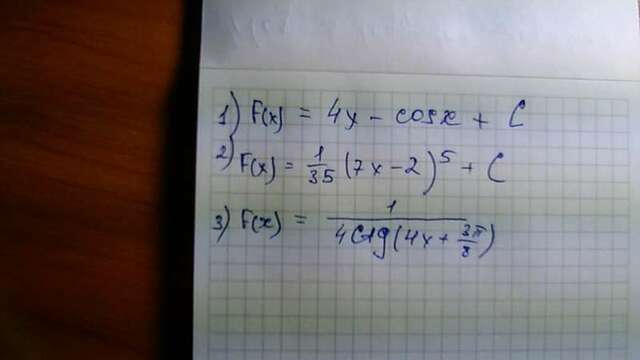 1) F(x) = 4x - cosx + C
2) F(x) = 1/35 (7x-2)^5 + C
3) F(x) = 1/(4ctg(4x + 3π/8))